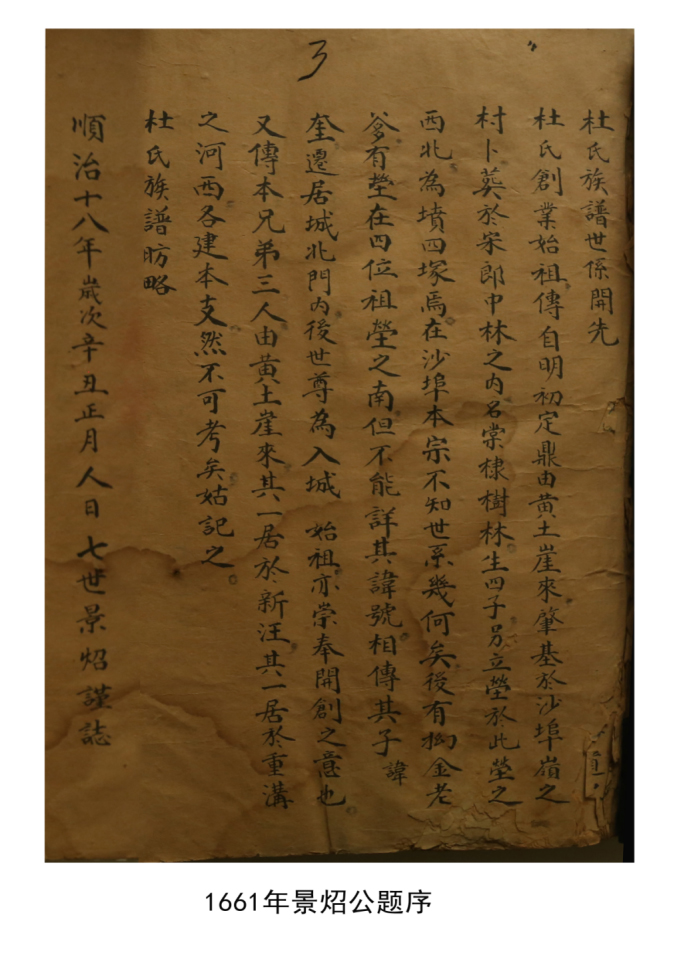 3
杜氏族譜世係開先
杜氏創業始祖傳自明初定鼎由黄土崖來肇基於沙埠嶺之
村卜葬於宋郎中林之内名棠棣樹林生四子另立塋於此塋之
西北為墳四塚焉在沙埠本宗不知世系幾何矣後有抝金老
爹有塋在四位祖塋之南但不能詳其諱號相傳其子諱
奎遷居城北門内後世尊為入城 始祖亦崇奉開創之意也
又傳本兄弟三人由黄土崖來其一居於新汪其一居於重溝
之河西各建本支然不可考矣姑記之
杜氏族譜昉略
順治十八年歲次辛丑正月人日七世景炤謹誌
1661年景炤公题序